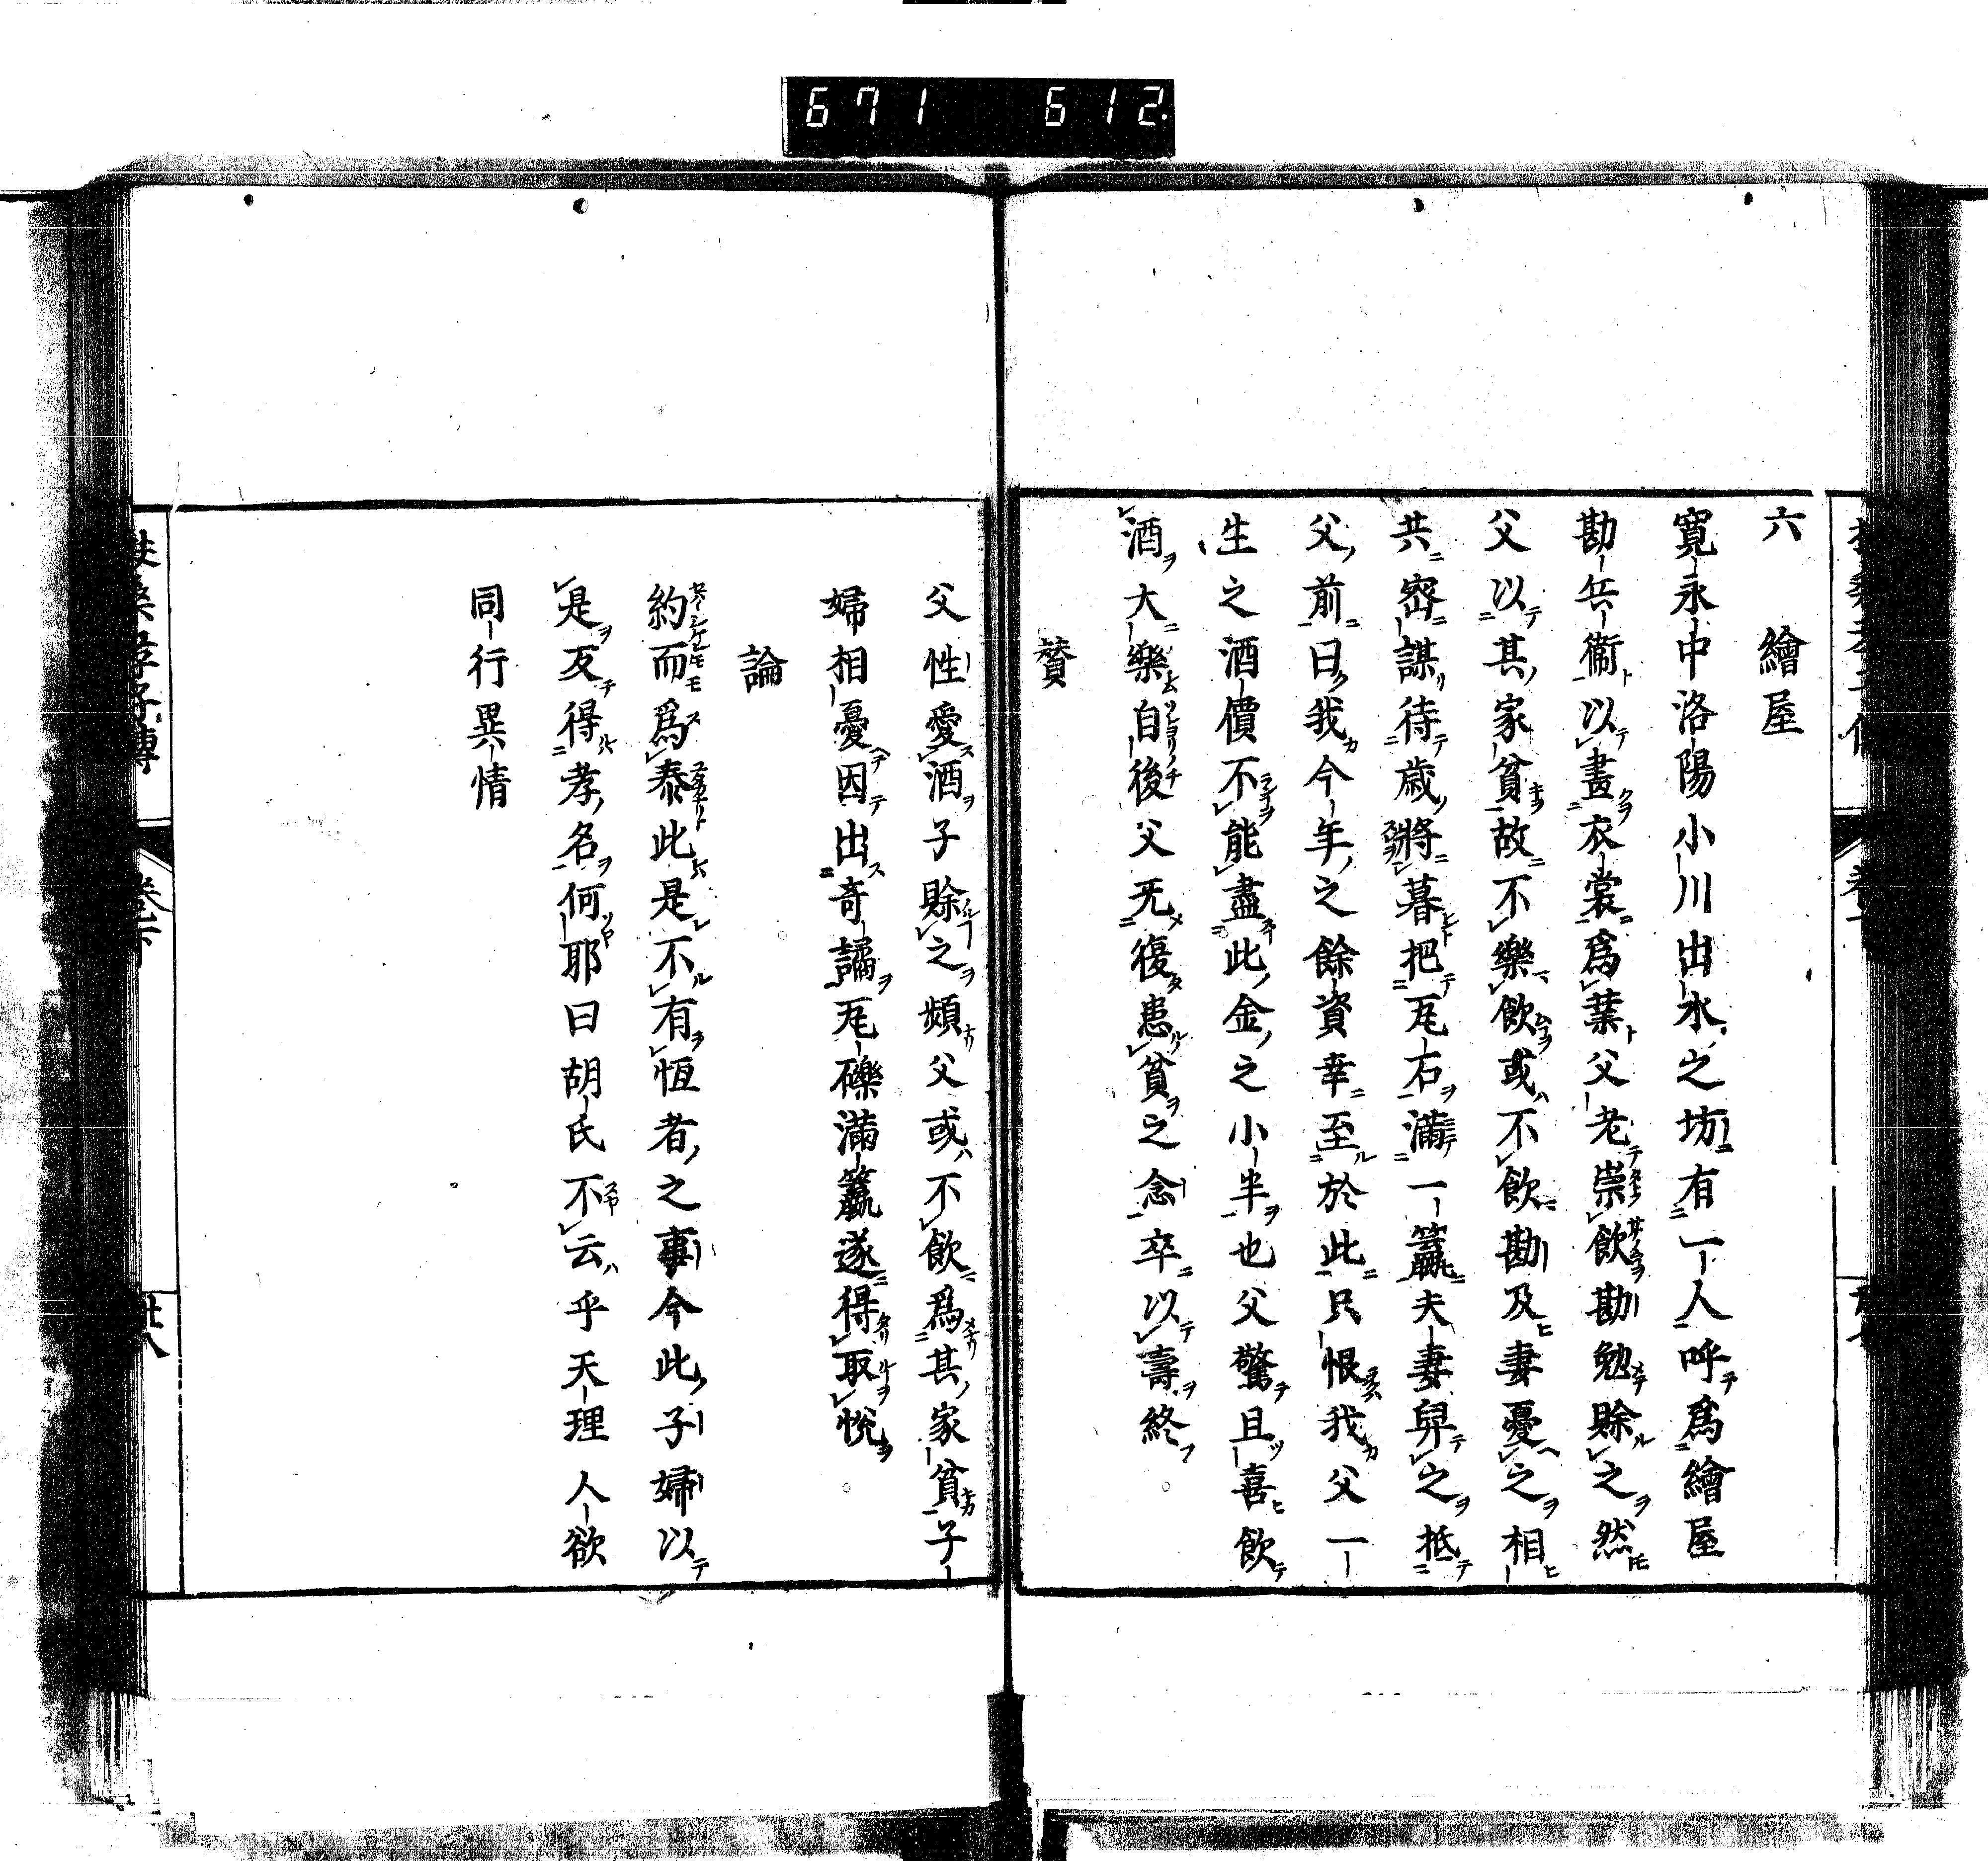 671 612.
六 繪屋
寛永中洛陽小川出水之坊有一人呼爲繪屋
勘兵衞以畫衣裳爲葉父老崇飲勘勉賖之然
父以其家貧故不樂飲或不飲勘及妻憂之相
共密謀待歳將暮把瓦石滿一籯夫妻舁之抵
父前曰我今年之餘資幸至於此只恨我父一
生之酒價不能盡此金之小半也父驚且喜飲
酒大樂自後父无復患貧之念卒以壽終
賛
父性愛酒子賖之頻父或不飲爲其家貧子
婦相憂因出奇譎瓦礫滿籯遂得取悅
論
約而爲泰此是不有恒者之事今此子婦以
是反得孝名何耶曰胡氏不云乎天理人欲
同行異情